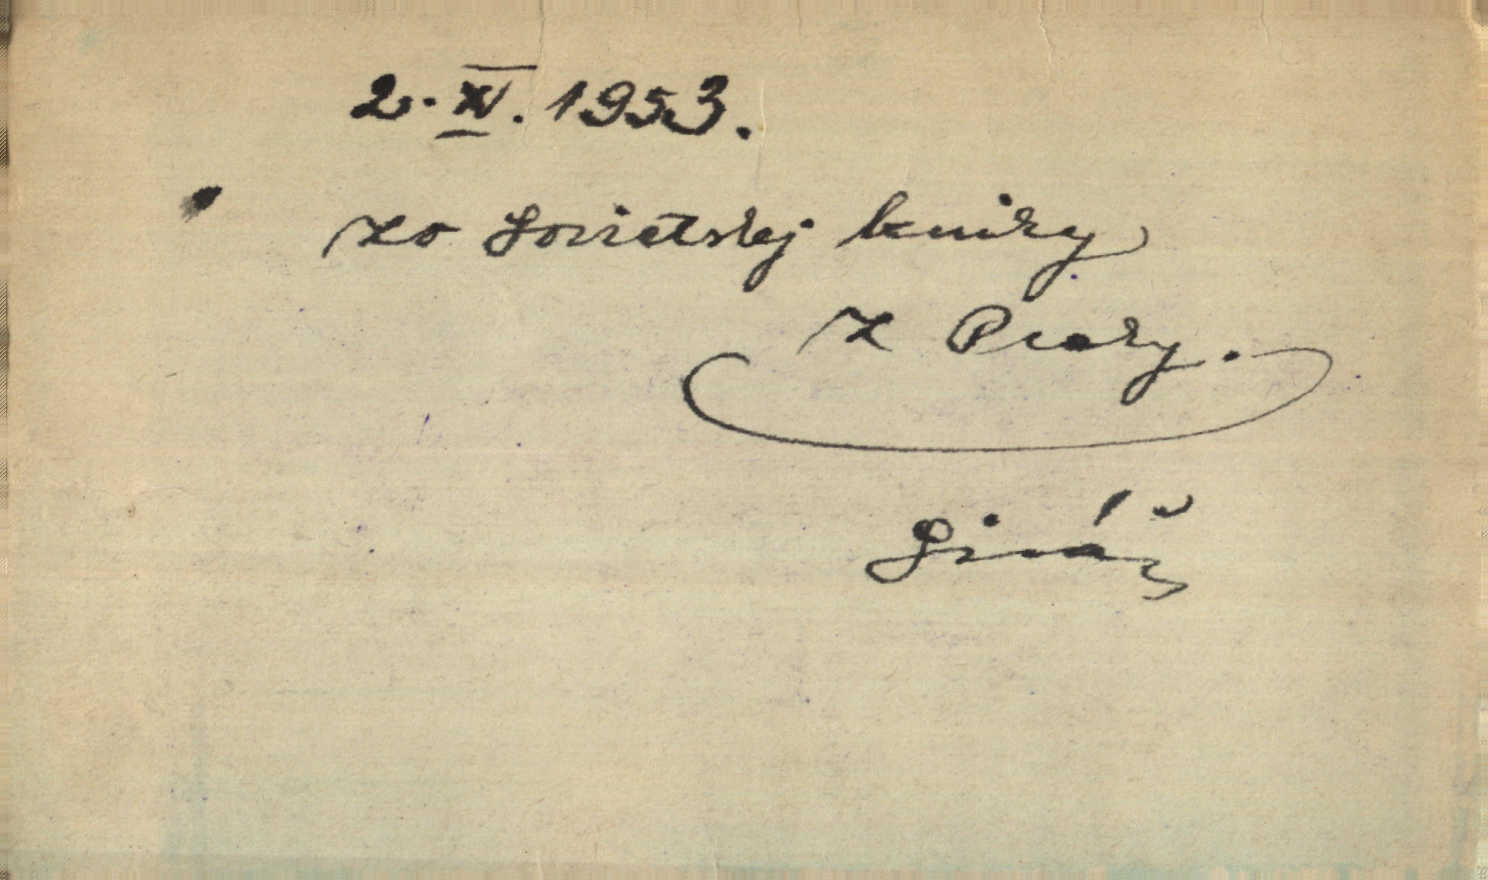 2. XI. 1953.
zo Sovietskej knihy
z Prahy.